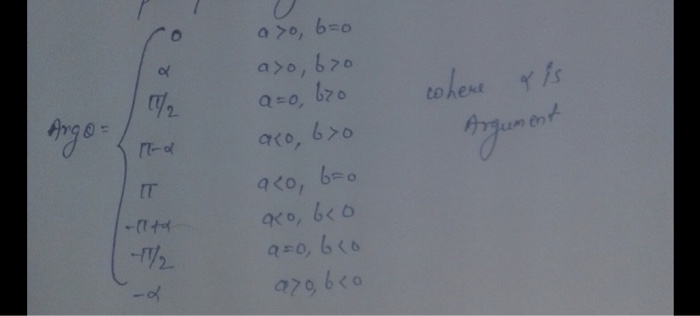 0 a>0, b=0
α a>0, b>0
π/2 a=0, b>0
Argθ = π-α a<0, b>0
π a<0, b=0
-π+α a<0, b<0
-π/2 a=0, b<0
-α a>0, b<0
where α is
Argument